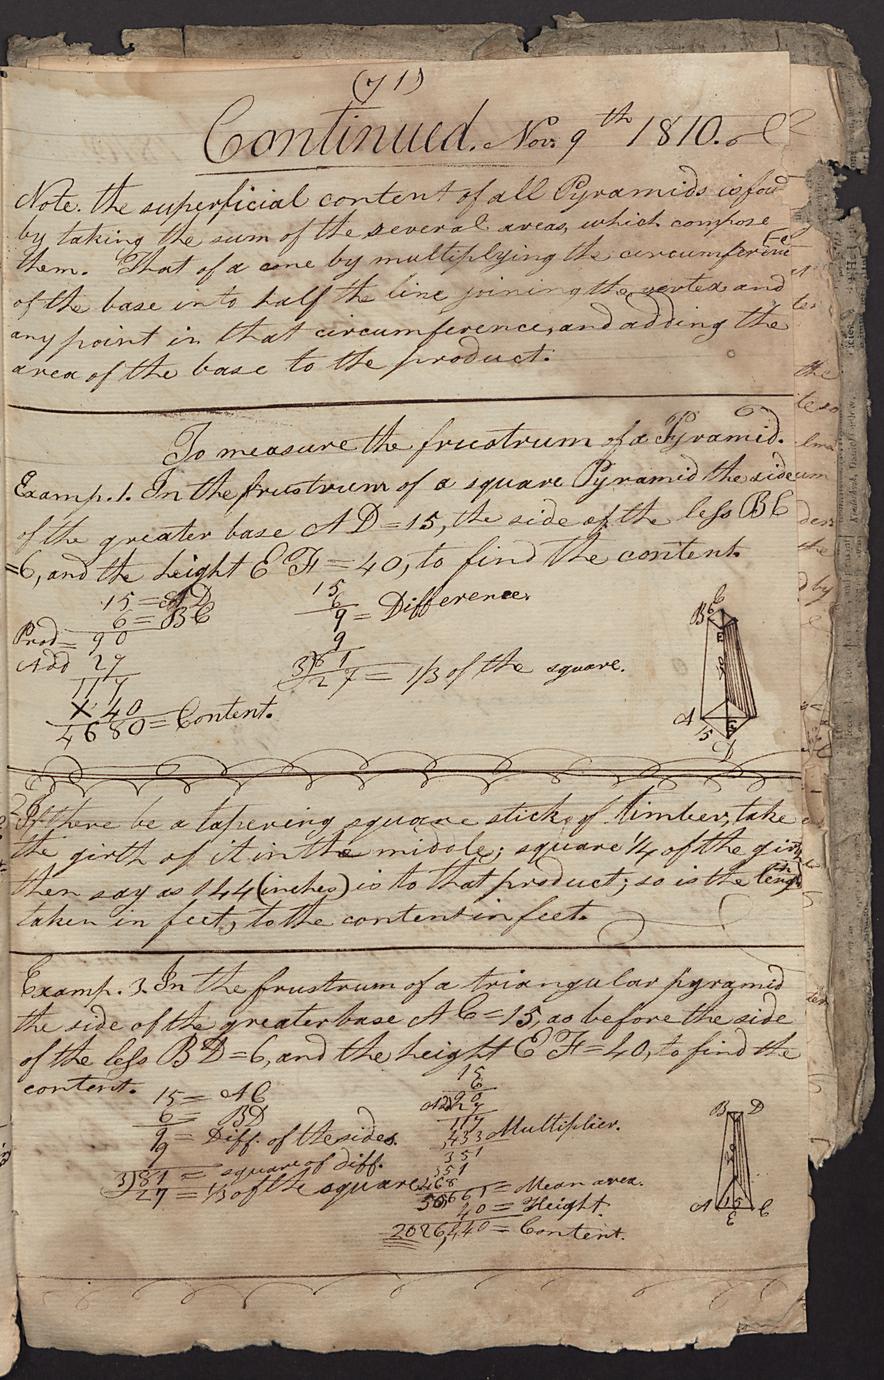 (71)
Continued. Nov. 9th 1810.
Note. the superficial content of all Pyramids is foud
by taking the sum of the several areas, which compose
them. That of a cone by multiplying the circumference
of the base into half the line joining the vertex and
any point in that circumference, and adding the
area of the base to the product.
To measure the frustrum of a Pyramid.
Examp. 1. In the frustrum of a square Pyramid the side
of the greater base AD=15, the side of the less BC
=6, and the height EF=40, to find the content.
15=AD
6=BC
Prod= 90
Add 27
117
X 40
4680=Content.
15
6
9=Difference
9
3)81
27=1/3 of the square.
B C
E
40
A
F
15
D
2 If there be a tapering square stick of timber, take
the girth of it in the middle; square 1/4 of the girth
then say as 144 (inches) is to that product; so is the length
taken in feet, to the content in feet.
Examp. 3. In the frustrum of a triangular pyramid
the side of the greater base AC=15, as before the side
of the less BD=6, and the height EF=40, to find the
content.
15= AC
6= BD
9= Diff. of the sides.
9
3)81= square of diff.
27= 1/3 of the square
15
6
90
Add 27
117
,433 Multiplier.
351
351
468
50661= Mean area.
40= Height.
2026,440= Content.
B D
A 15 C
E